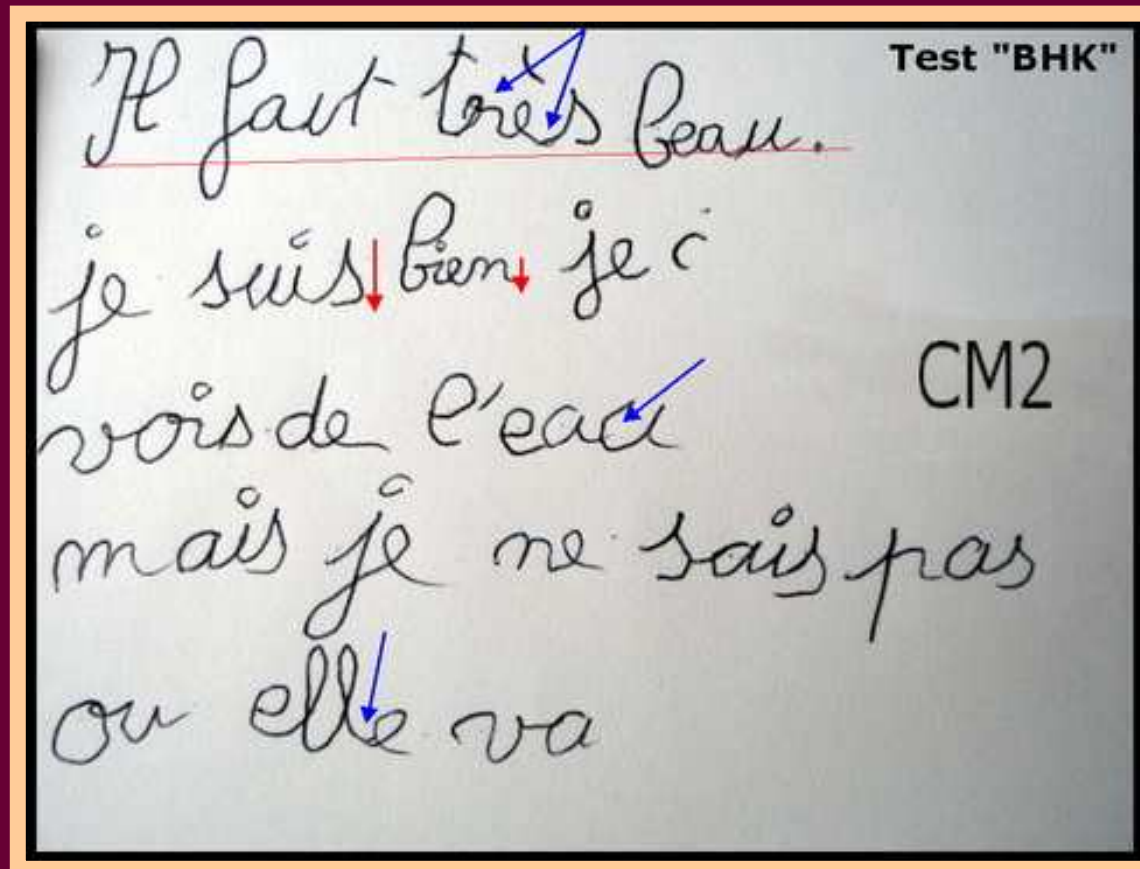 Test "BHK"
Il faut très beau.
je suis bien je
vois de l'eau
CM2
mais je ne sais pas
ou elle va